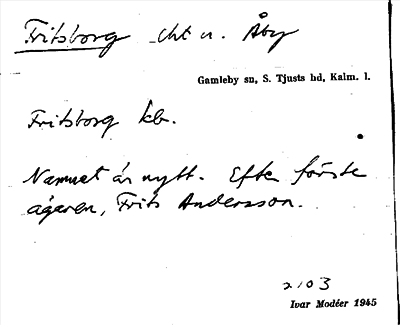 Fritsborg cht u. Åby
Gamleby sn, S. Tjusts hd, Kalm. l.
Fritsborg kb.
Namnet är nytt. Efter förste
ägaren, Frits Andersson.
2103
Ivar Modéer 1945